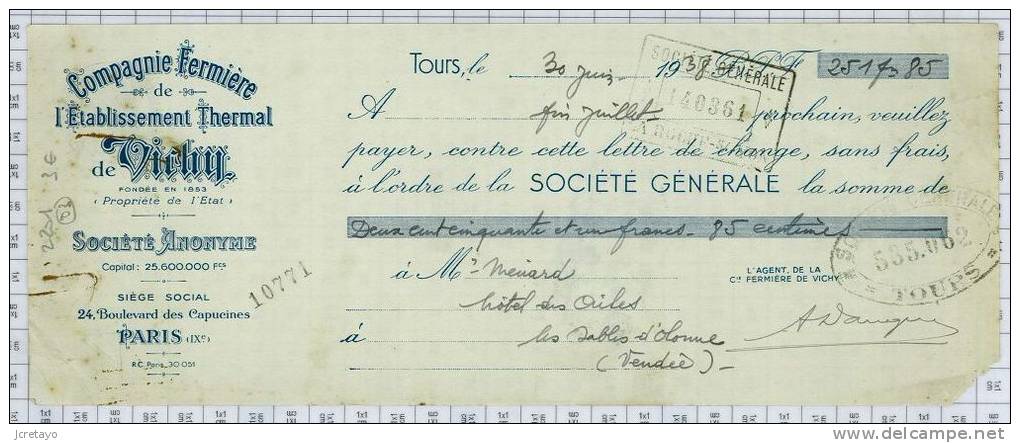 Compagnie Fermière
de
l'Etablissement Thermal
de Vichy
FONDÉE EN 1853
(Propriété de l'Etat)
SOCIÉTÉ ANONYME
Capital: 25.600.000 Fcs
SIÈGE SOCIAL
24, Boulevard des Capucines
PARIS (IXe)
R.C. Paris_30 051
10771
Tours, le 30 juin 1938. B.P.F. 251f 85
A fin juillet prochain, veuillez
payer, contre cette lettre de change, sans frais,
à l'ordre de la SOCIÉTÉ GÉNÉRALE la somme de
Deux cent cinquante et un francs - 85 centimes
à Mr Menard
hôtel des Ailes
à les Sables d'Olonne
(Vendée)
L'AGENT. DE LA
Cie FERMIÈRE DE VICHY
SOCIÉTÉ GÉNÉRALE
140361
SOCIÉTÉ GÉNÉRALE
535.062
TOURS
jcretayo
www.delcampe.net